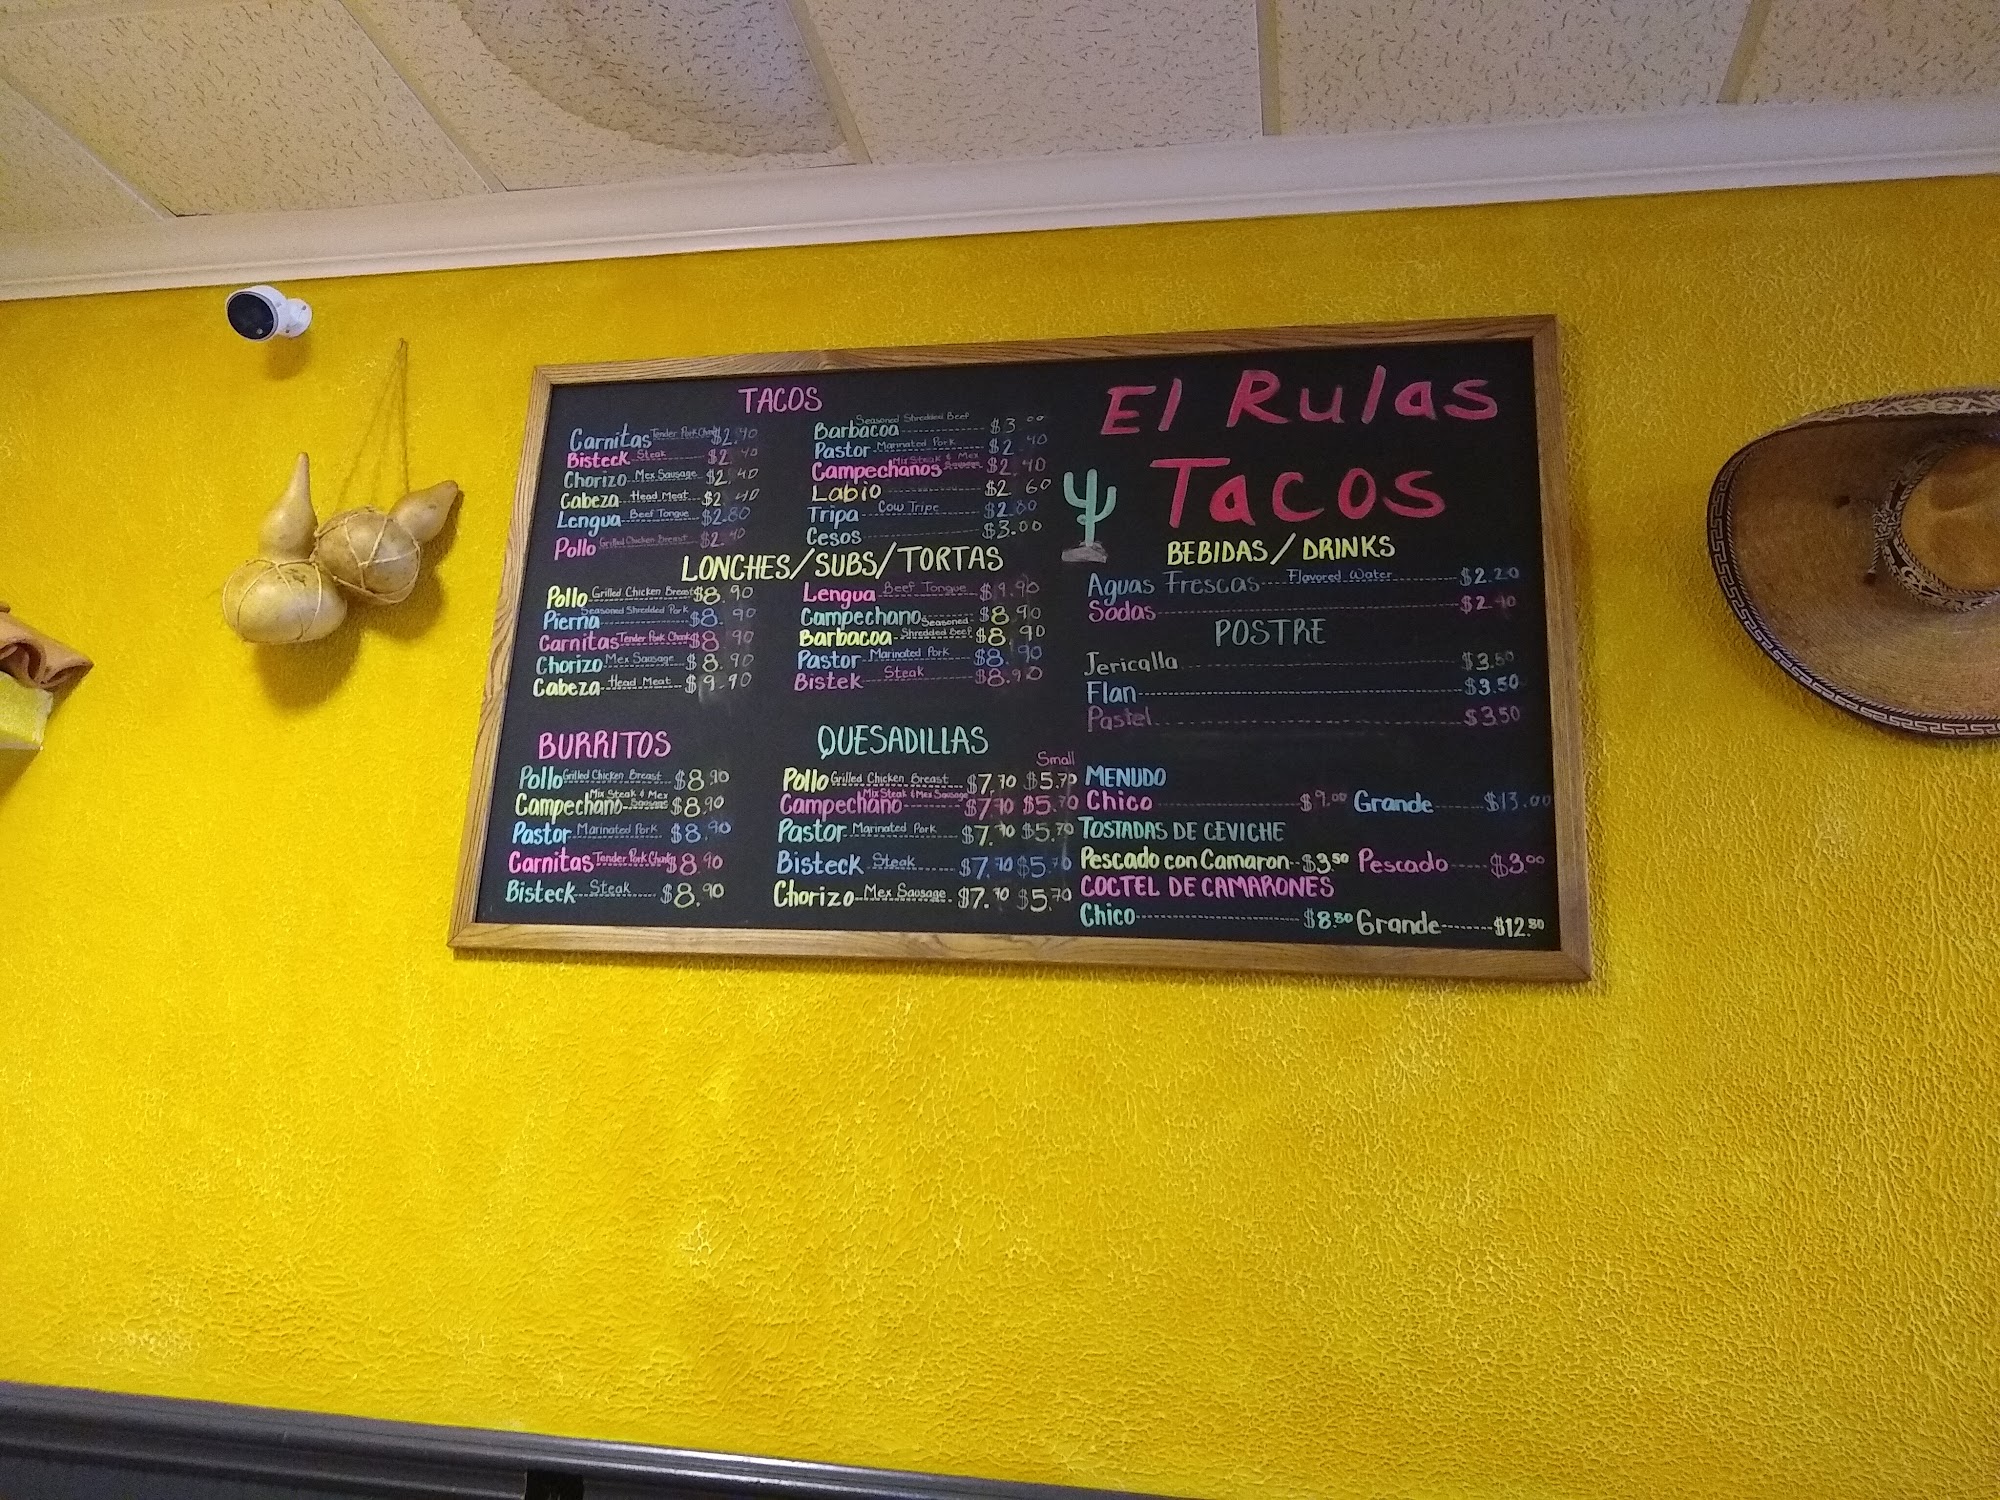 El Rulas
Tacos
TACOS
Carnitas Tender Pork Chunk $2.40
Bisteck Steak $2.40
Chorizo Mex Sausage $2.40
Cabeza Head Meat $2.40
Lengua Beef Tongue $2.80
Pollo Grilled Chicken Breast $2.40
Barbacoa Seasoned Shredded Beef $3.00
Pastor Marinated Pork $2.40
Campechanos Mix Steak & Mex Sausage $2.40
Labio $2.60
Tripa Cow Tripe $2.80
Cesos $3.00
LONCHES/SUBS/TORTAS
Pollo Grilled Chicken Breast $8.90
Pierna Seasoned Shredded Pork $8.90
Carnitas Tender Pork Chunk $8.90
Chorizo Mex Sausage $8.90
Cabeza Head Meat $9.90
Lengua Beef Tongue $9.90
Campechano $8.90
Barbacoa Seasoned Shredded Beef $8.90
Pastor Marinated Pork $8.90
Bistek Steak $8.90
BURRITOS
Pollo Grilled Chicken Breast $8.90
Campechano Mix Steak & Mex Sausage $8.90
Pastor Marinated Pork $8.90
Carnitas Tender Pork Chunk $8.90
Bisteck Steak $8.90
QUESADILLAS
Small
Pollo Grilled Chicken Breast $7.70 $5.70
Campechano Mix Steak & Mex Sausage $7.70 $5.70
Pastor Marinated Pork $7.70 $5.70
Bisteck Steak $7.70 $5.70
Chorizo Mex Sausage $7.70 $5.70
BEBIDAS/DRINKS
Aguas Frescas Flavored Water $2.20
Sodas $2.40
POSTRE
Jericalla $3.50
Flan $3.50
Pastel $3.50
MENUDO
Chico $9.00 Grande $13.00
TOSTADAS DE CEVICHE
Pescado con Camaron $3.50 Pescado $3.00
COCTEL DE CAMARONES
Chico $8.50 Grande $12.50